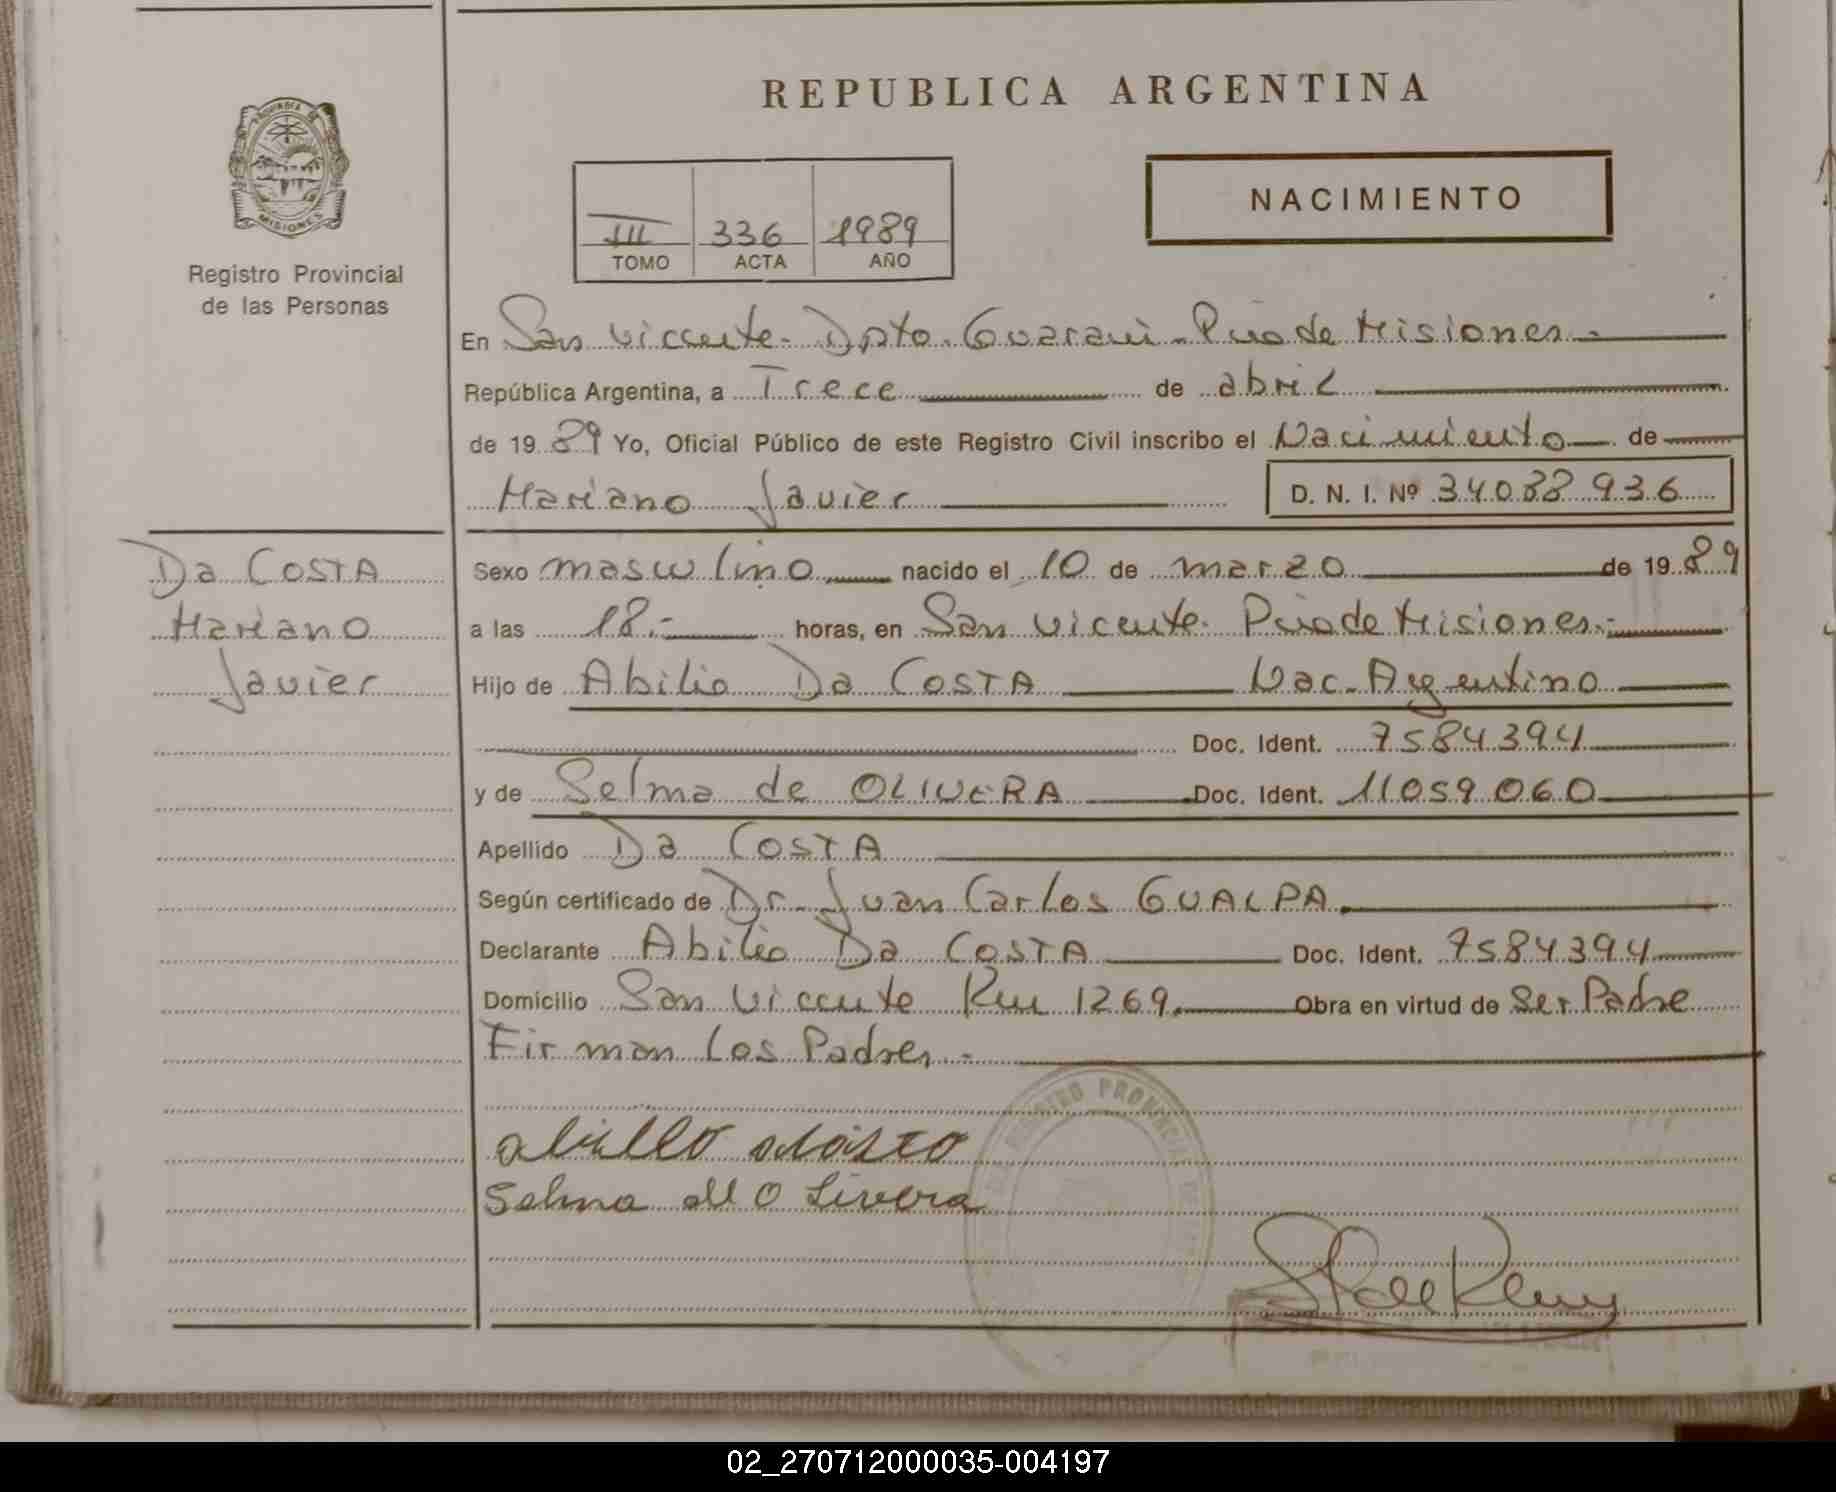 REPUBLICA ARGENTINA
NACIMIENTO
III 336 1989
TOMO ACTA AÑO
PROVINCIA DE MISIONES
Registro Provincial
de las Personas
En San Vicente - Dpto. Guaraní - Pcia de Misiones.-
República Argentina, a Trece de abril
de 1989 Yo, Oficial Público de este Registro Civil inscribo el Nacimiento de
Mariano Javier D. N. I. Nº 34088936
Da COSTA
Mariano
Javier
Sexo masculino nacido el 10 de marzo de 1989
a las 18.- horas, en San Vicente. Pcia de Misiones.-
Hijo de Abilio Da COSTA Nac. Argentino
Doc. Ident. 7584394
y de Selma de OLIVERA Doc. Ident. 11059060
Apellido Da COSTA
Según certificado de Dr. Juan Carlos GUALPA.
Declarante Abilio Da COSTA Doc. Ident. 7584394
Domicilio San Vicente Km 1269. Obra en virtud de Ser Padre
Firman los Padres.-
REGISTRO PROVINCIAL DE
Selma de Olivera
02_270712000035-004197